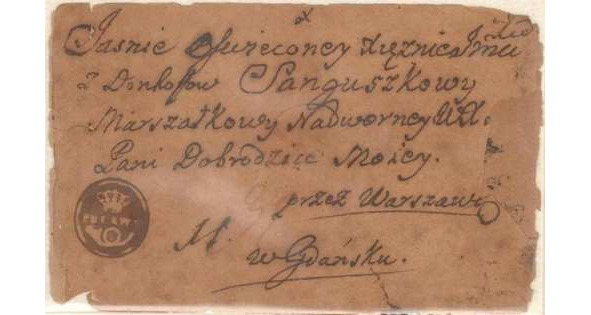 Jasnie Oświeconey Xiężnie Jmći
z Denhofow Sanguszkowy
Marszałkowy Nadworney W. X.
Pani Dobrodzice Moiey.
przez Warszawę
w Gdańsku.